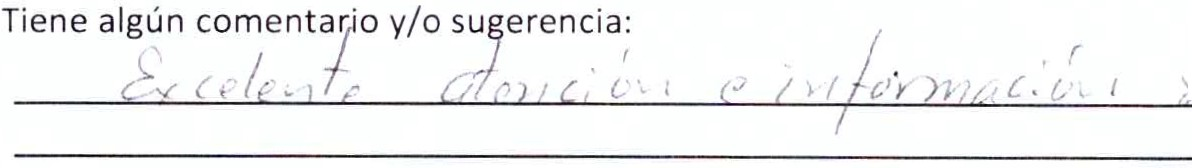 Tiene algún comentario y/o sugerencia:
Excelente atención e información